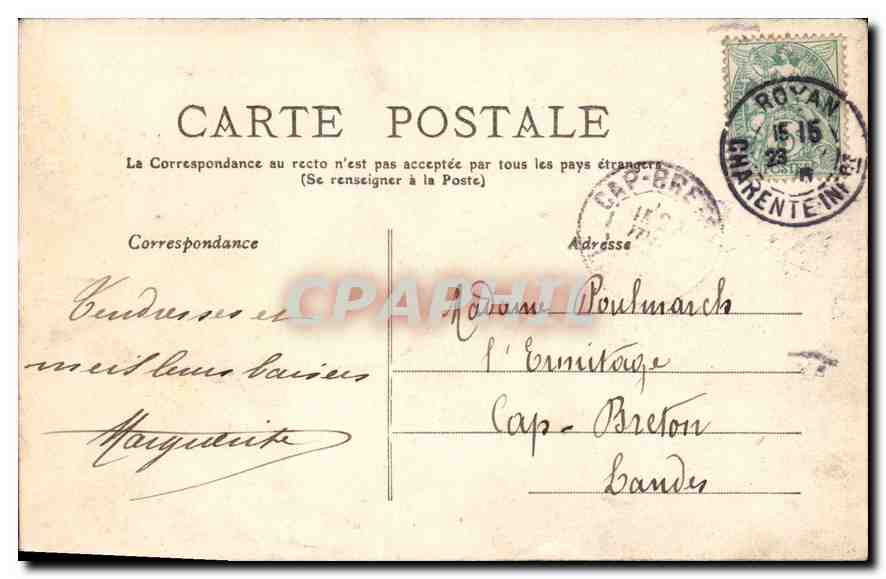 CARTE POSTALE
La Correspondance au recto n'est pas acceptée par tous les pays étrangers
(Se renseigner à la Poste)
ROYAN
15 15
23
CHARENTE INFRE
CAP-BRE
Correspondance
Adresse
Tendresses et
meilleurs baisers
Marguerite
Madame Poulmarch
l'Ermitage
Cap-Breton
Landes
CPAPHIL